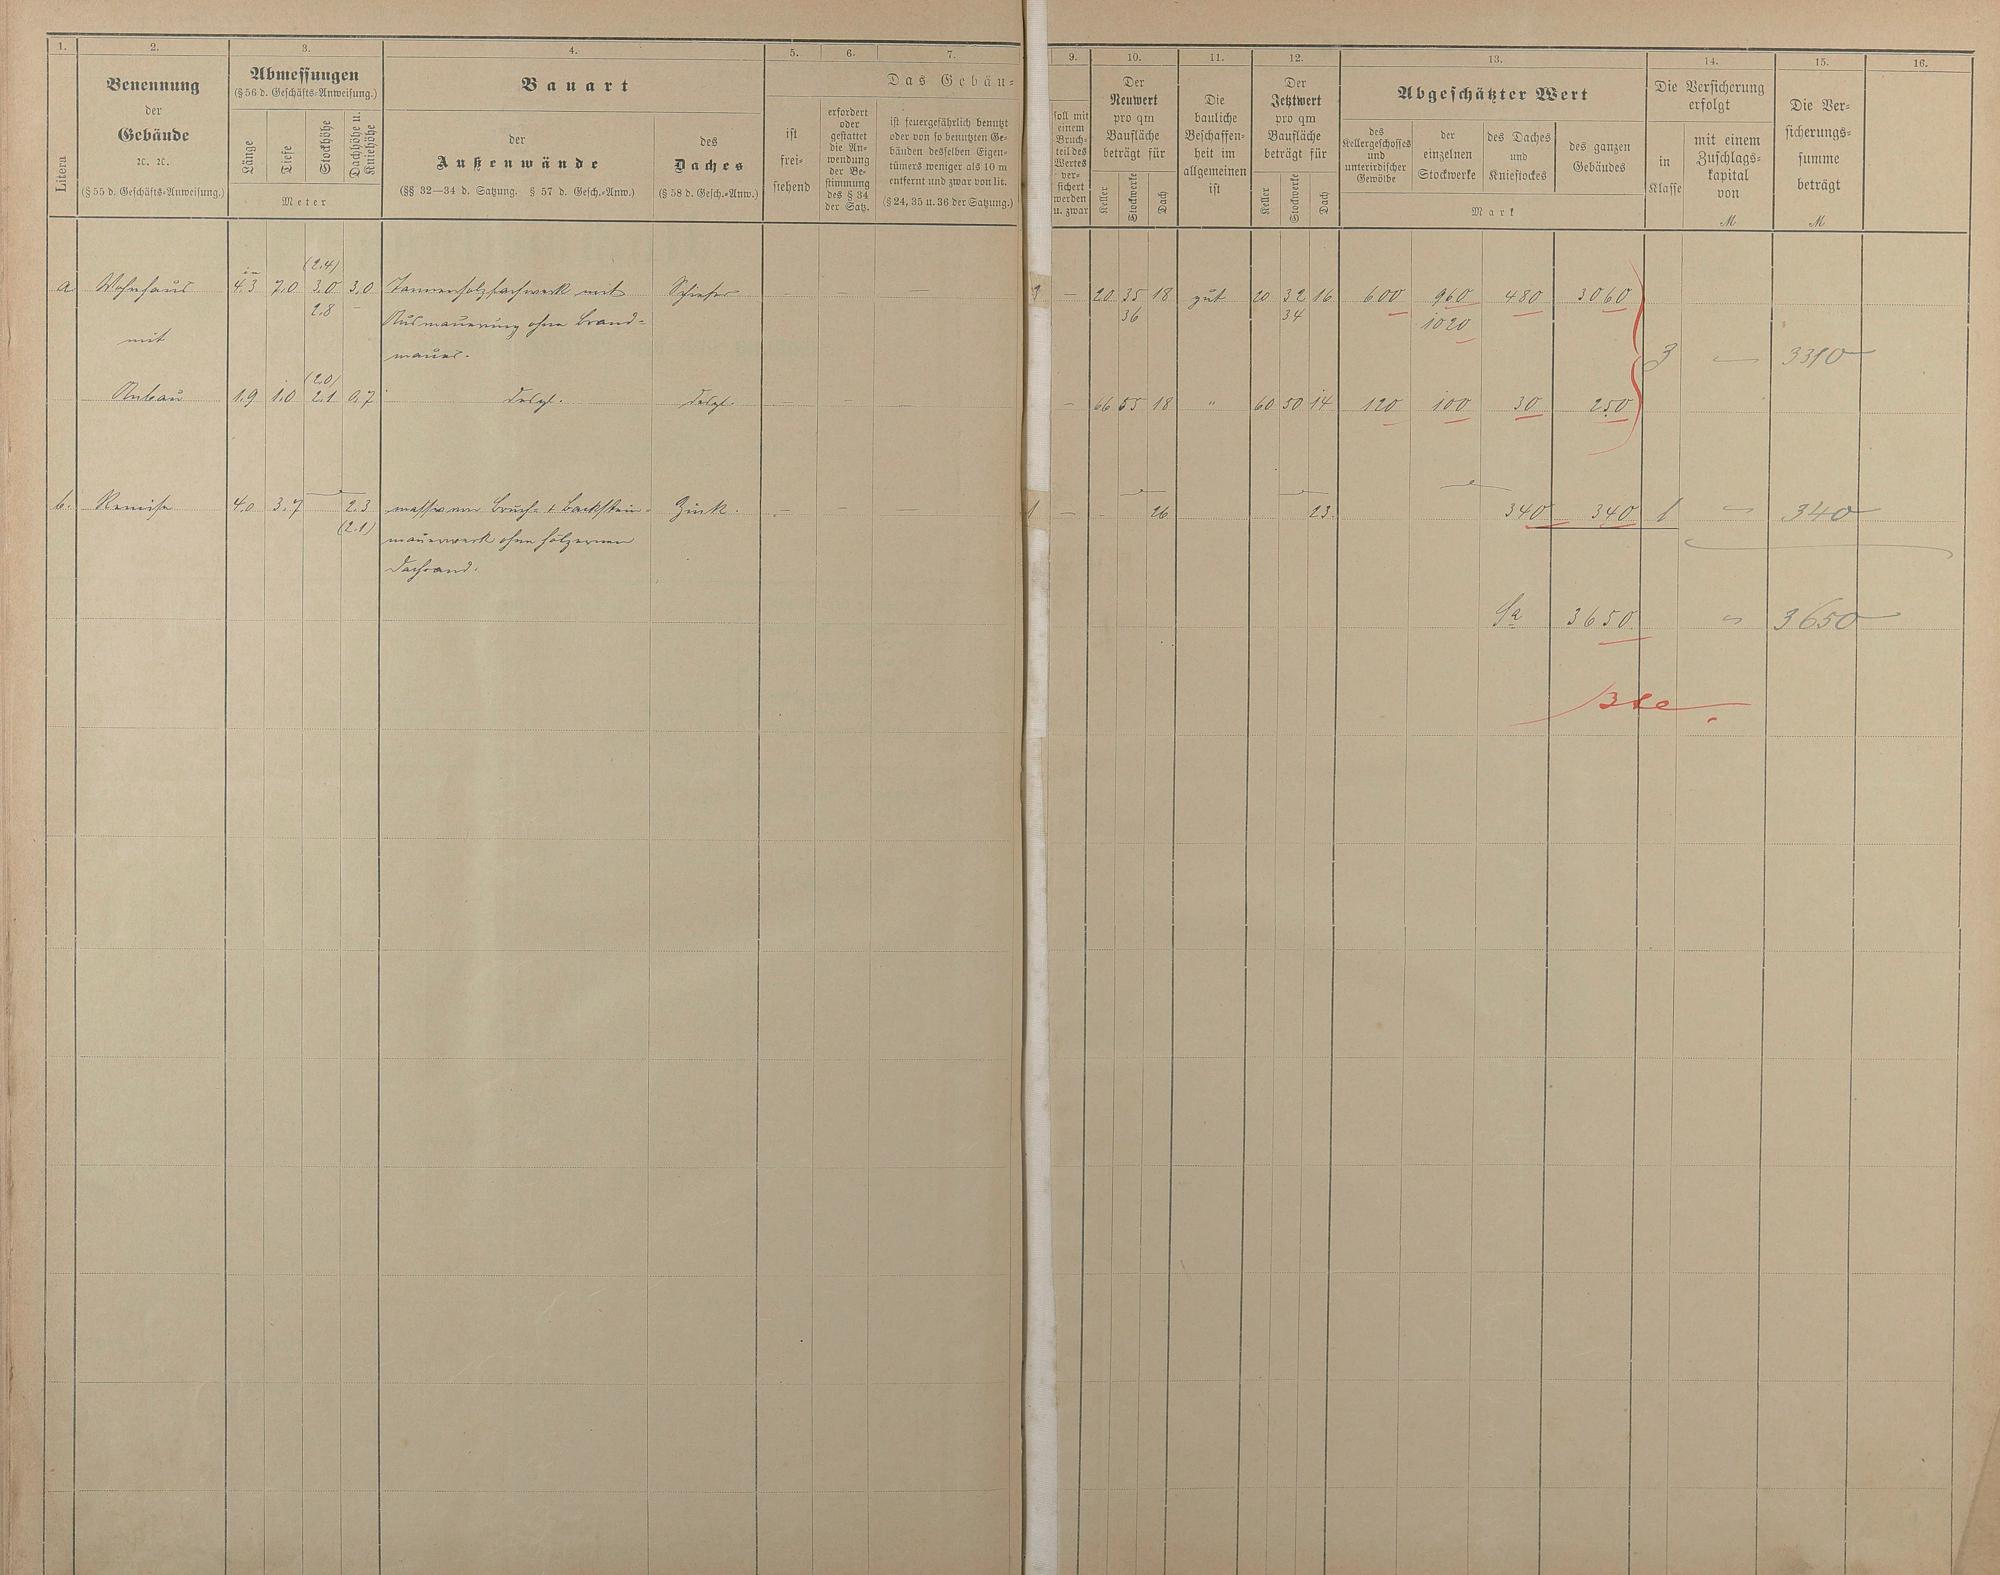 1. 2. 3. 4. 5. 6. 7. 9. 10. 11. 12. 13. 14. 15. 16.
Litera
Benennung
der
Gebäude
ꝛc. ꝛc.
(§ 55 d. Geschäfts-Anweisung.)
Abmessungen
(§ 56 d. Geschäfts-Anweisung.)
Länge
Tiefe
Stockhöhe
Dachhöhe u.
Kniehöhe
Meter
Bauart
der
Außenwände
(§§ 32—34 d. Satzung. § 57 d. Gesch.-Anw.)
des
Daches
(§ 58 d. Gesch.-Anw.)
Das Gebäu-
ist
frei-
stehend
erfordert
oder
gestattet
die An-
wendung
der Be-
stimmung
des § 34
der Satz.
ist feuergefährlich benutzt
oder von so benutzten Ge-
bäuden desselben Eigen-
tümers weniger als 10 m
entfernt und zwar von lit.
(§ 24, 35 u. 36 der Satzung.)
soll mit
einem
Bruch-
teil des
Wertes
ver-
sichert
werden
u. zwar
Der
Neuwert
pro qm
Baufläche
beträgt für
Keller
Stockwerke
Dach
Die
bauliche
Beschaffen-
heit im
allgemeinen
ist
Der
Jetztwert
pro qm
Baufläche
beträgt für
Keller
Stockwerke
Dach
Abgeschätzter Wert
des
Kellergeschosses
und
unterirdischer
Gewölbe
der
einzelnen
Stockwerke
des Daches
und
Kniestockes
des ganzen
Gebäudes
Mark
Die Versicherung
erfolgt
in
Klasse
mit einem
Zuschlags-
kapital
von
M
Die Ver-
sicherungs-
summe
beträgt
M
(2.4)
a Wohnhaus 4.3 7.0 3.0 3.0 Tannenholzfachwerk mit Schiefer — — — — 20 35 18 gut 20 32 16 600 960 480 3060
2.8 — Ausmauerung ohne Brand- 36 34 1020
mit mauer. 3 — 3310
(2.0)
Anbau 1.9 1.0 2.1 0.7 desgl. desgl. — — — — 66 55 18 " 60 50 14 120 100 30 250
b. Remise 4.0 3.7 2.3 massivem Bruch- & Backstein- Zink. — — — 1 — - 26 23 340 340 1 — 340
(2.1) mauerwerk ohne hölzernen
Dachrand.
Sa 3650 3650